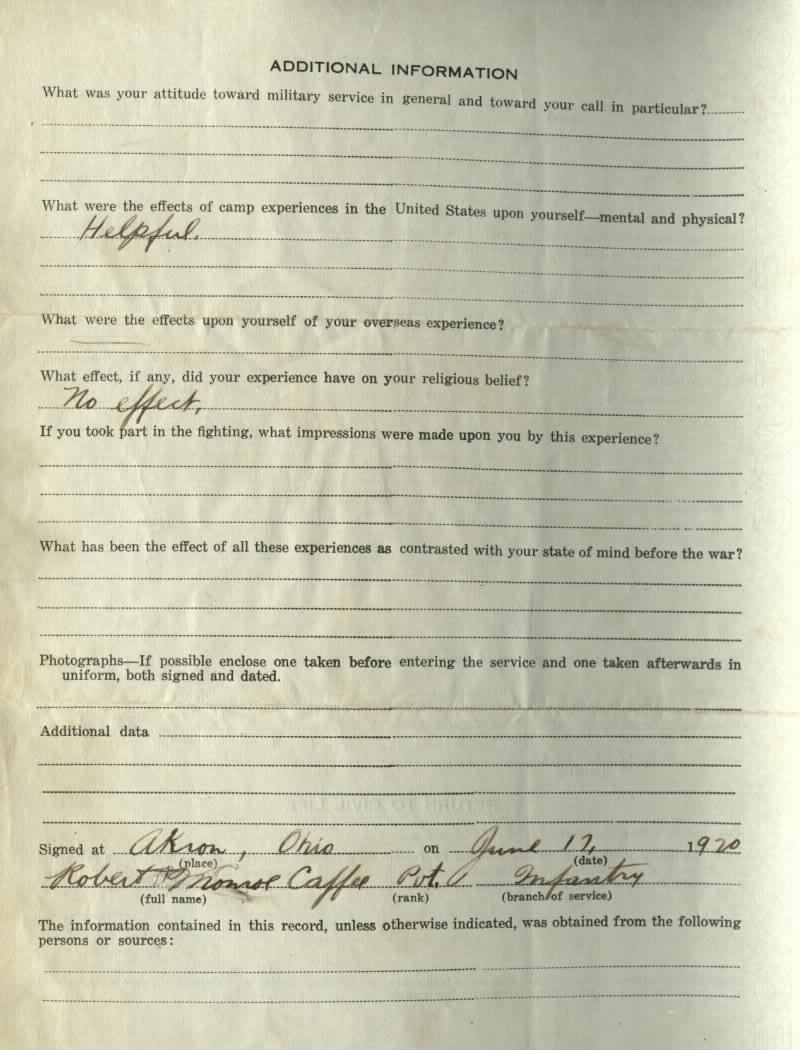 ADDITIONAL INFORMATION
What was your attitude toward military service in general and toward your call in particular?
What were the effects of camp experiences in the United States upon yourself—mental and physical?
Helpful.
What were the effects upon yourself of your overseas experience?
What effect, if any, did your experience have on your religious belief?
No effect.
If you took part in the fighting, what impressions were made upon you by this experience?
What has been the effect of all these experiences as contrasted with your state of mind before the war?
Photographs—If possible enclose one taken before entering the service and one taken afterwards in
uniform, both signed and dated.
Additional data
Signed at Akron, Ohio on June 12, 1920
(place) (date)
Robert Monroe Caffee Pvt. Infantry
(full name) (rank) (branch of service)
The information contained in this record, unless otherwise indicated, was obtained from the following
persons or sources: